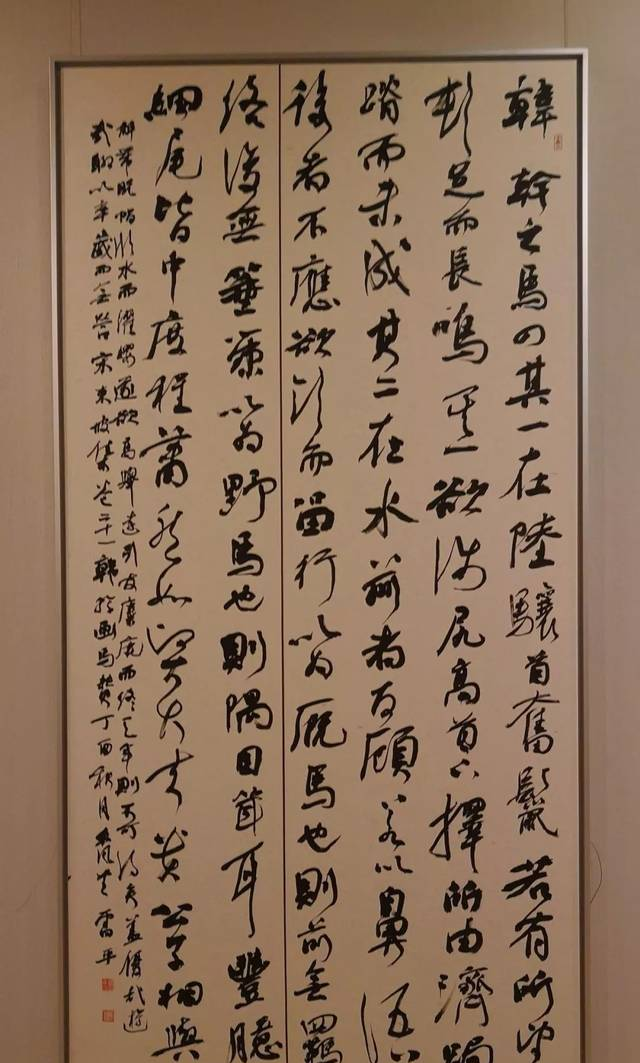 韓幹之馬四其一在陸驤首奮鬣若有所望
頓足而長鳴其一欲涉尻高首下擇所由濟跼
蹐而未成其二在水前者反顧若以鼻語
後者不應欲飲而留行以為厩馬也則前無羈
絡後無箠策以為野馬也則隅目聳耳豐臆
細尾皆中度程蕭然如賢大夫貴公子相與
解帶脫帽臨水而濯纓遂欲高舉遠引友麋鹿而終天年則不可得矣蓋優哉游
哉聊以卒歲而無營宋東坡集卷二十一韓幹畫馬贊丁酉秋月雷平